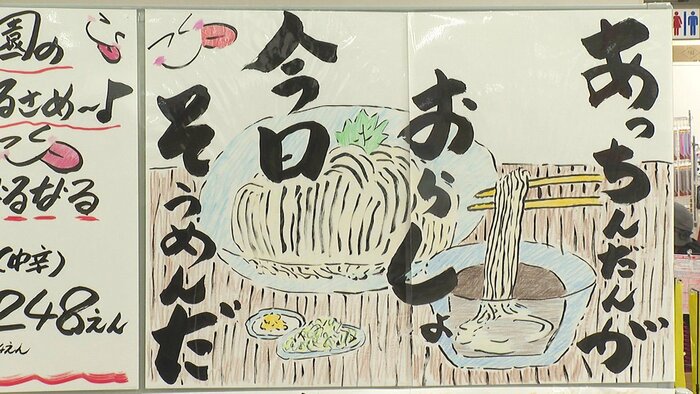 あっちんだんが
おらしょ
今日
そうめんだ
園の
るさめ～♪
なるなる
(中辛)
248えん